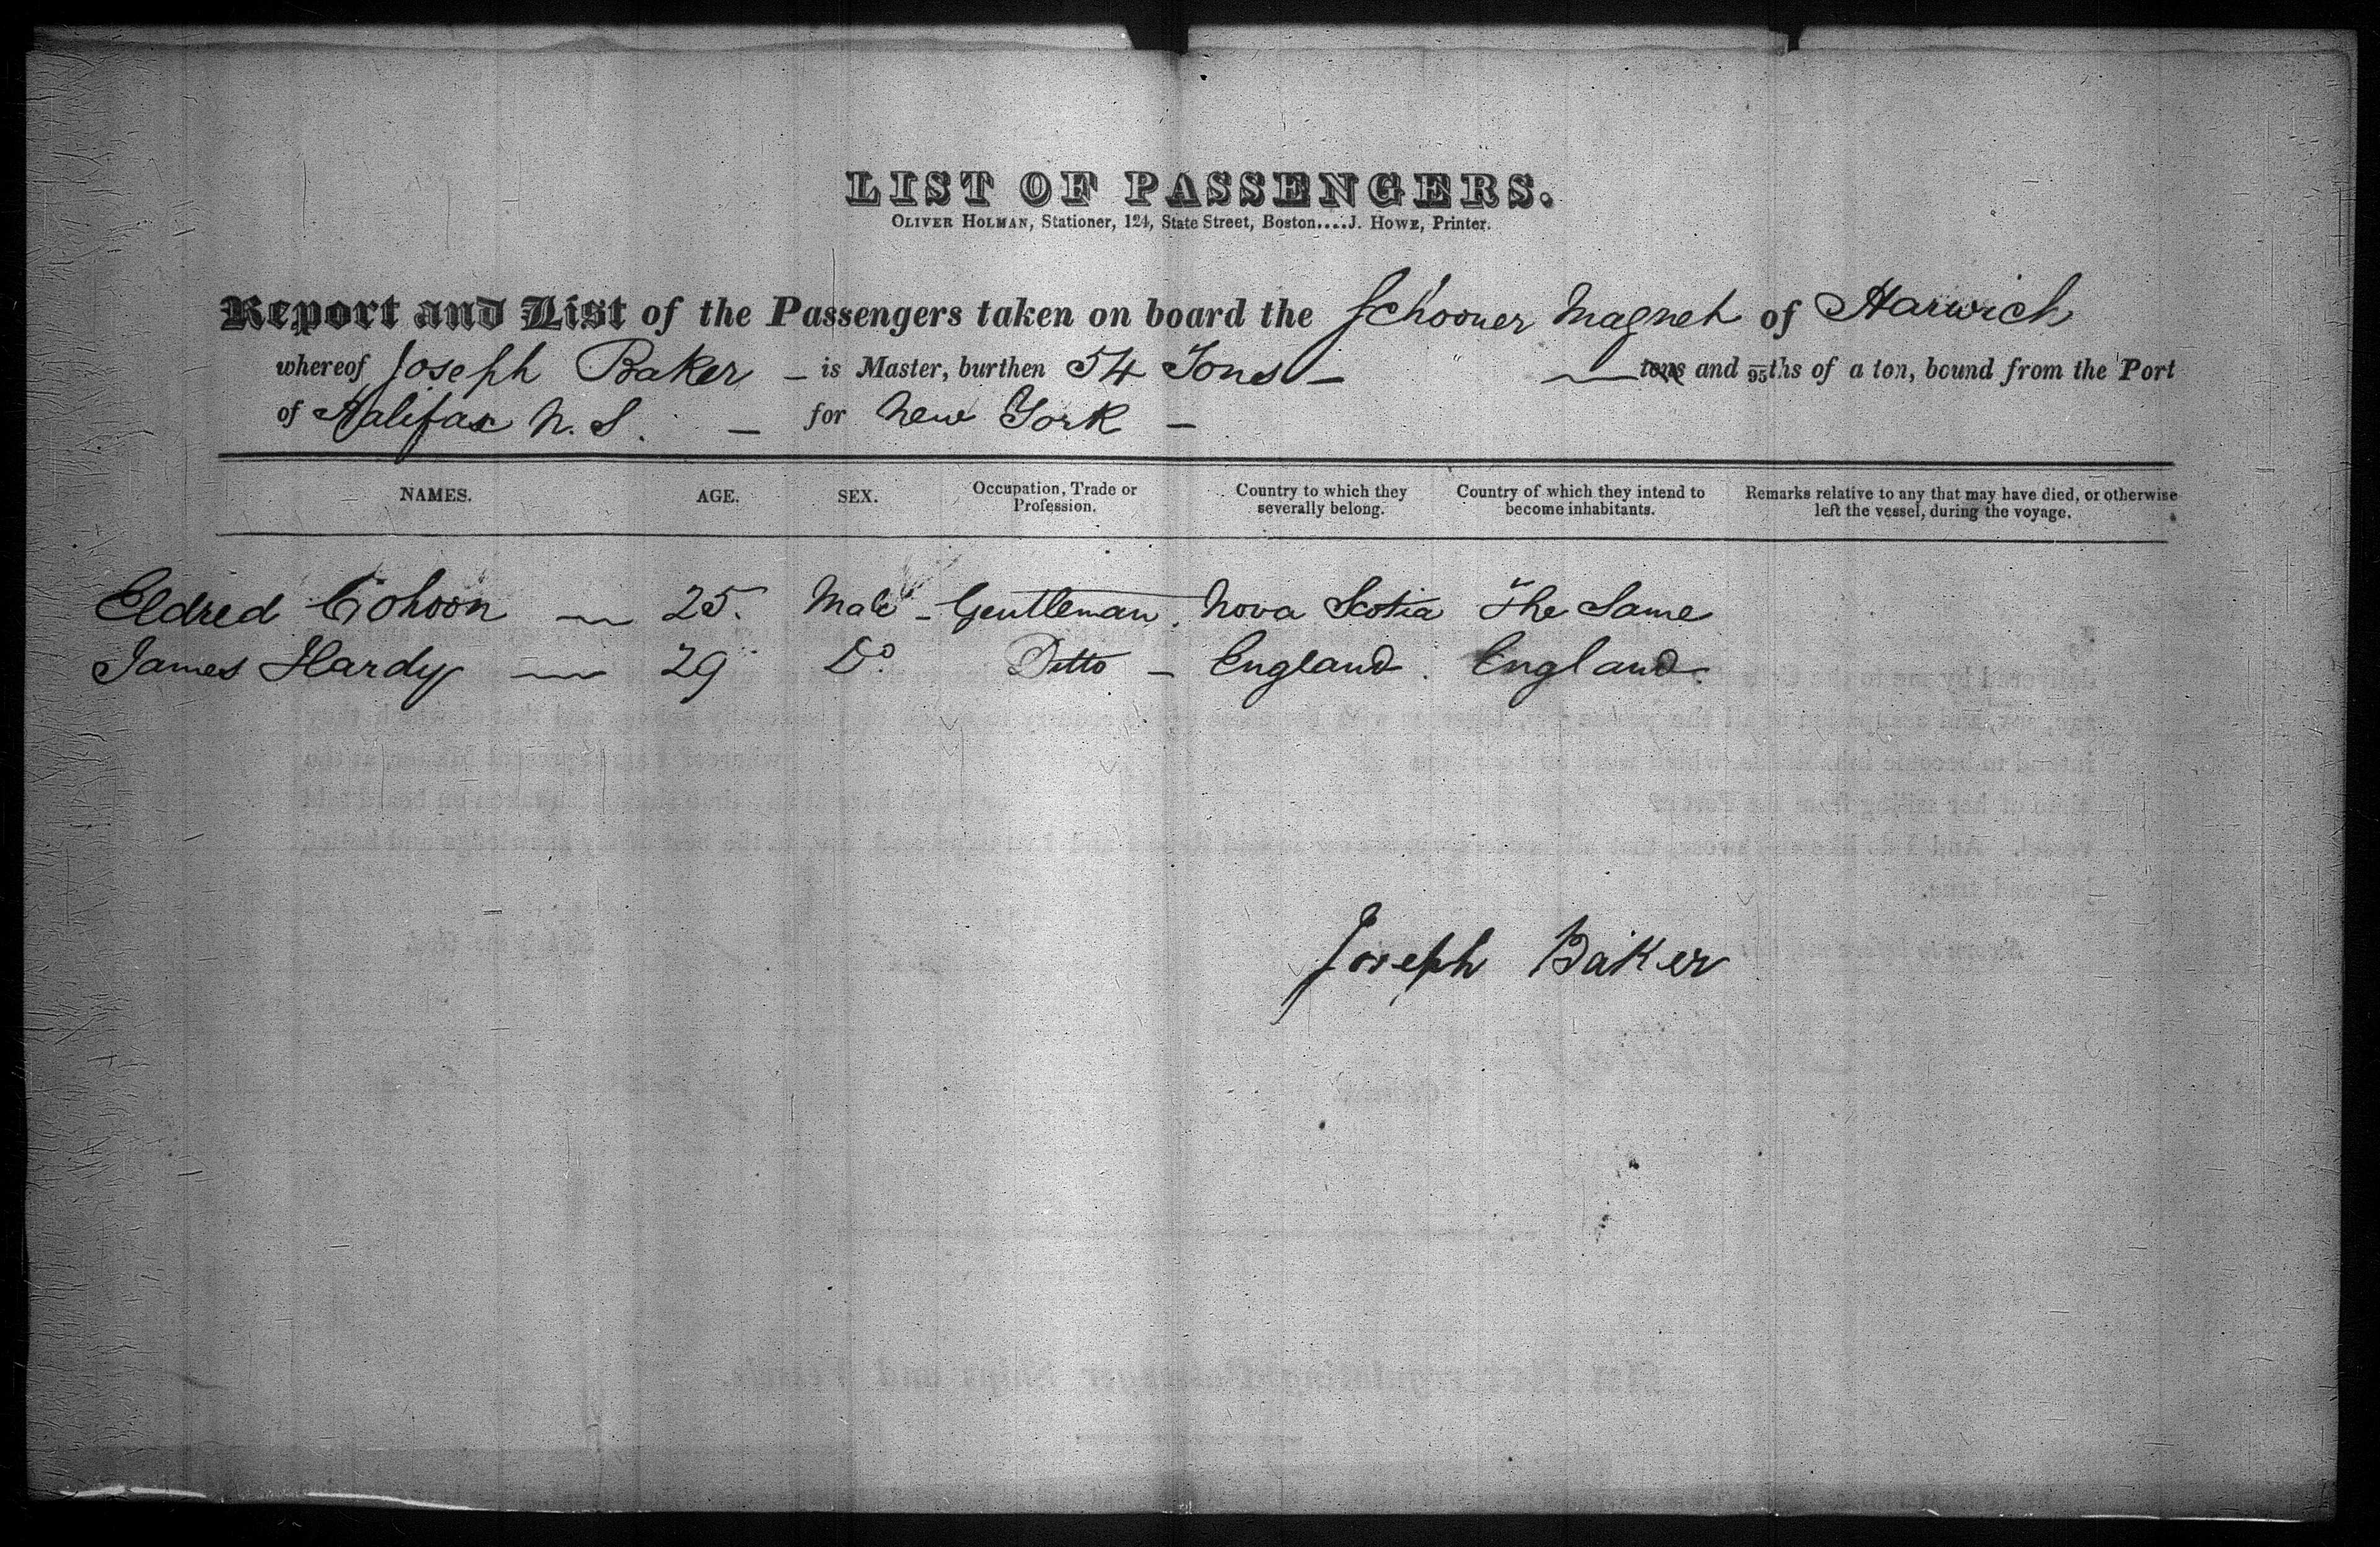 LIST OF PASSENGERS.
OLIVER HOLMAN, Stationer, 124, State Street, Boston....J. HOWE, Printer.
Report and List of the Passengers taken on board the Schooner Magnet of Harwich
whereof Joseph Baker – is Master, burthen 54 Tons – tons and 95ths of a ton, bound from the Port
of Halifax N. S. – for New York –
NAMES. AGE. SEX. Occupation, Trade or Profession. Country to which they severally belong. Country of which they intend to become inhabitants. Remarks relative to any that may have died, or otherwise left the vessel, during the voyage.
Eldred Cohoon — 25. Male – Gentleman. Nova Scotia The Same
James Hardy — 29 Do. Ditto – England. England.
Joseph Baker